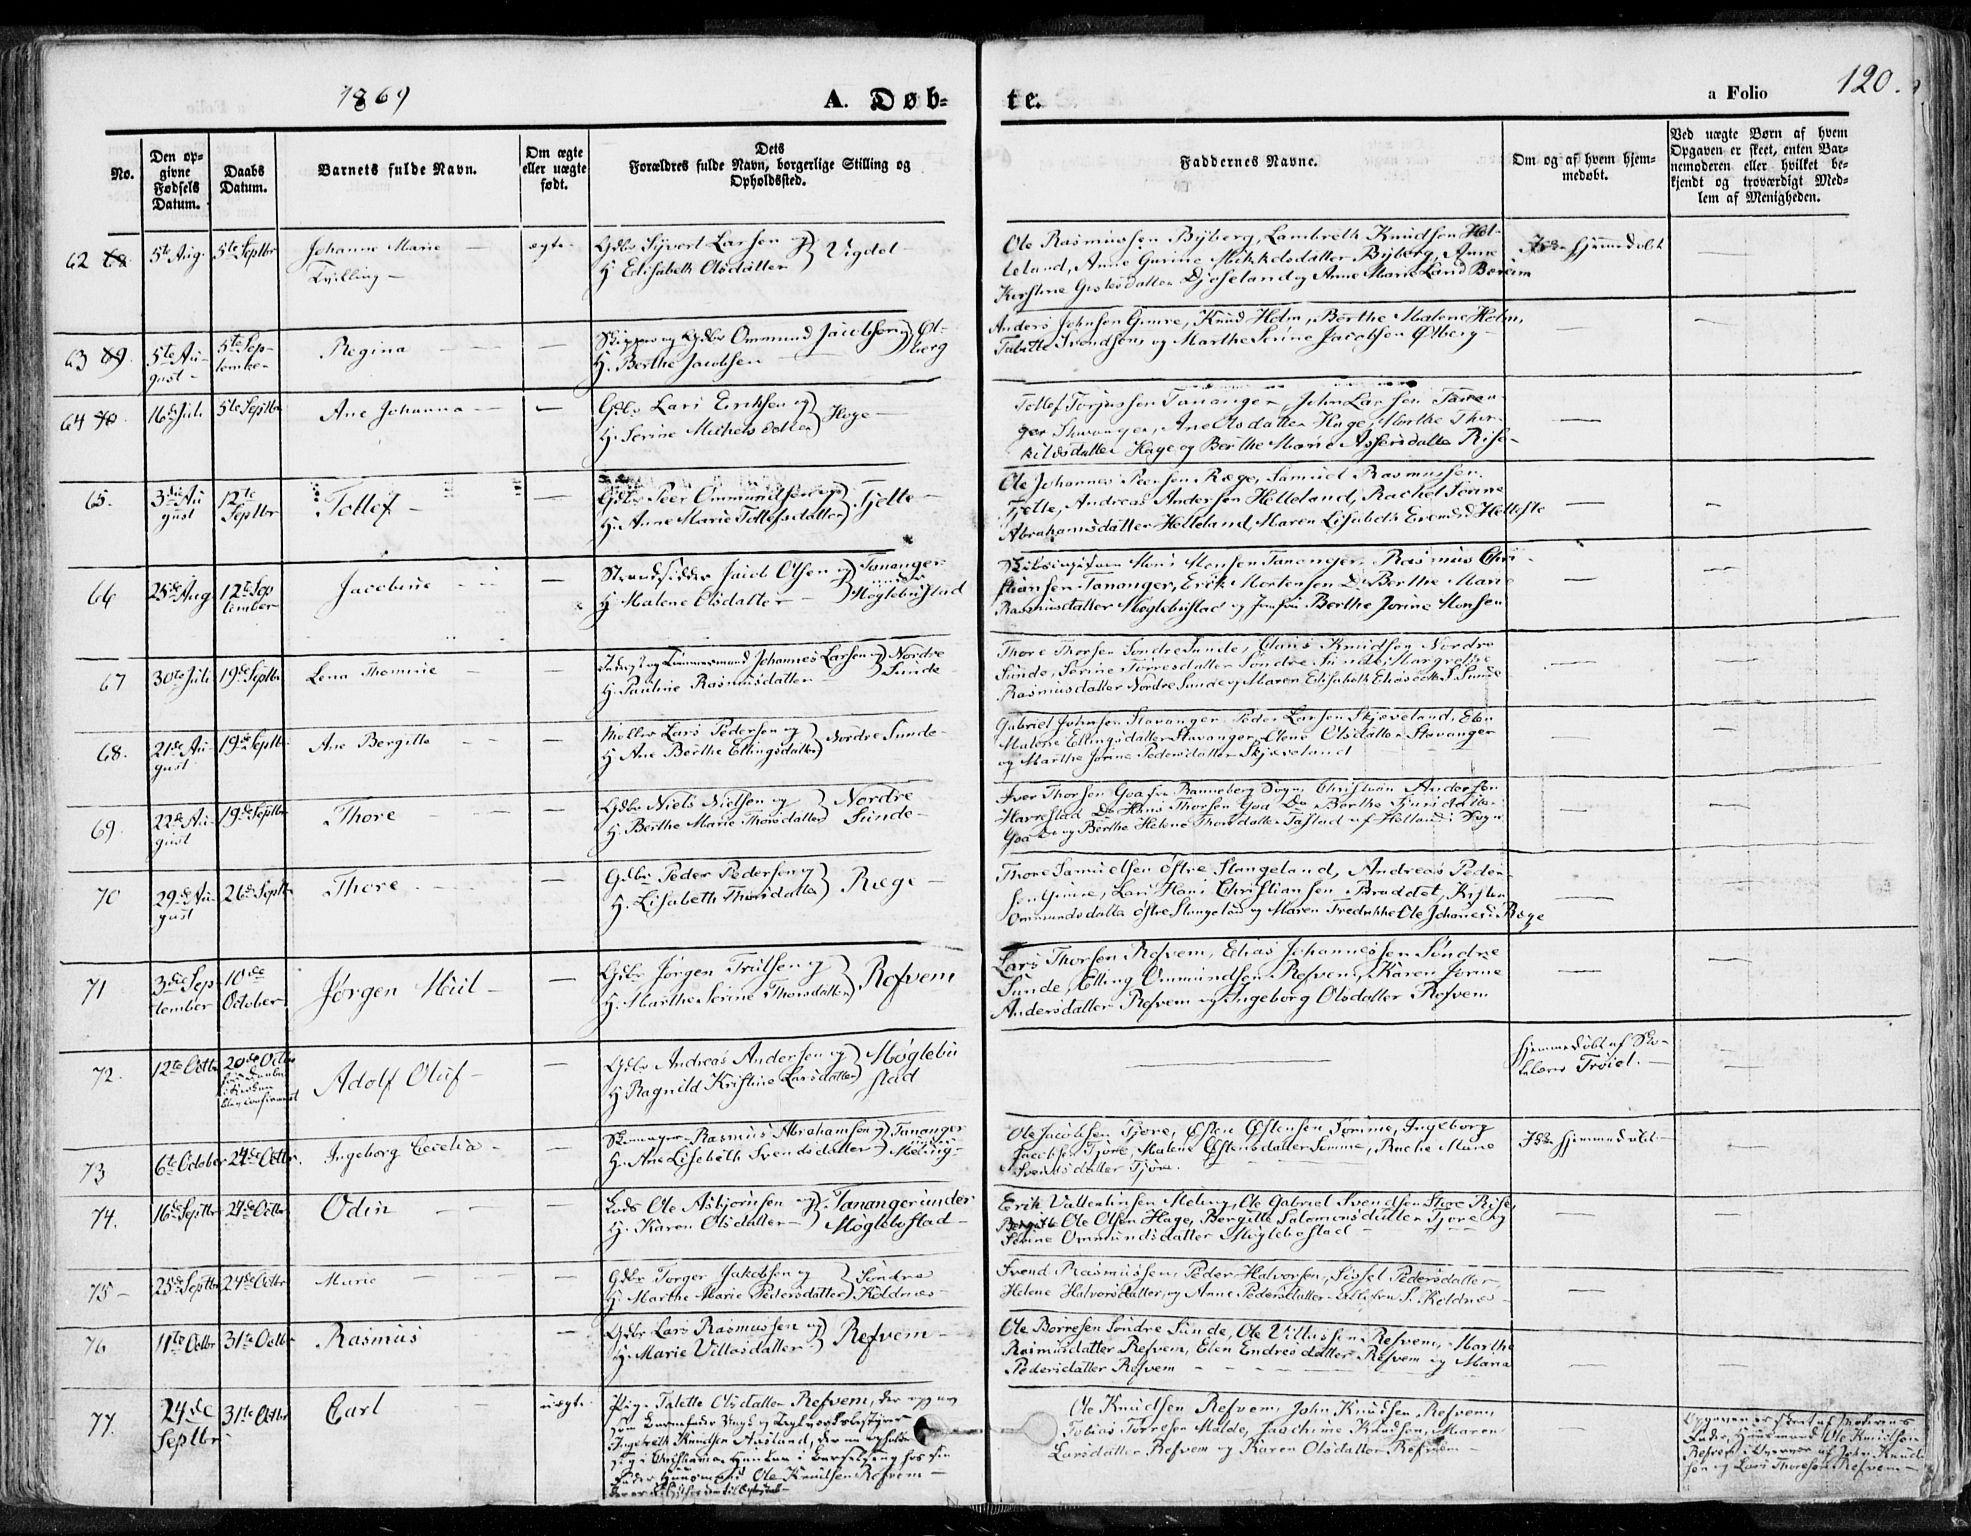 1869
A. Døb-
te.
a Folio
120.
No.
Den op-
givne
Fødsels
Datum.
Daabs
Datum.
Barnets fulde Navn.
Om ægte
eller uægte
født.
Dets
Forældres fulde Navn, borgerlige Stilling og
Opholdssted.
Faddernes Navne.
Om og af hvem hjem-
medøbt.
Ved uægte Børn af hvem
Opgaven er skeet, enten Bar-
nemoderen eller hvilket be-
kjendt og troværdigt Med-
lem af Menigheden.
62
5te Aug.
5te Septbr
Johanne Marie
Tvilling
ægte
Gdbr Syvert Larsen og
H. Elisabeth Olsdatter
Vigdel
Ole Rasmussen Byberg, Lambreth Knudsen Hel-
leland, Anne Gurine Mikkelsdatter Byberg, Anne
Kirstine Djøseland og Anne Marie Børeim
Hjemmedøbt
63
5te Au-
gust
5te Sep-
tember
Regina
Skipper og Gdbr Ommund Jacobsen og
H. Berthe Jacobsen
Øl-
berg
Anders Johnsen Gimre, Knud Holm, Berthe Malene Holm,
Tabitte Svendsen, og Marthe Serine Jacobsen Ølberg
64
16de Juli
5te Septbr
Ane Johanna
Gdbr Lars Eriksen og
H. Serine Michelsdatter
Hage
Tollef Torjussen Tananger, John Larsen Tanan-
ger Stavanger, Ane Olsdatter Hage, Marthe Thor-
kildsdatter Hage og Berthe Marie Assersdatter Rise
65.
3die Au
gust
12te
Septbr
Tollef
Gdbr Peer Ommundsen og
H. Anne Marie Tollefsdatter
Tjelte
Ole Johannes Peersen Ræge, Samuel Rasmussen
Tjelte, Andreas Andersen Helleland, Rachel Serine
Abrahamsdatter Helleland, Maren Lisabeth
66
25de Aug
12te Sep
tember
Jacobine
Strandsidder Jacob Olsen og
H. Malene Olsdatter
Tananger
under
Møglebustad
Mons Monsen Tananger, Rasmus Chri-
stiansen Tananger, Erik Mortensen Do Berthe Marie
Rasmusdatter Møglebustad og Berthe Jorine Monsen
67
30te Juli
19de Septbr
Lena Thomine
Inderst og Tømmermand Johannes Larsen og
H. Pauline Rasmusdatter
Nordre
Sunde
Thore Thorsen Søndre Sunde, Claus Knudsen Nordre
Sunde, Serine Torresdatter Søndre Sunde, Margrethe
Rasmusdatter Nordre Sunde og Maren Elisabeth S. Sunde
68.
21de Au-
gust
19de Septbr
Ane Bergitte
Møller Lars Pedersen og
H. Ane Berthe Ellingsdatter
Nordre Sunde
Gabriel Johnsen Stavanger, Peder Larsen Skjæveland, Elen
Malene Ellingsdatter Stavanger, Olene Olsdatter Stavanger
og Marthe Jorine Pedersdatter Skjæveland
69.
22de Au-
gust
19de Septbr
Thore
Gdbr Niels Nielsen og
H. Berthe Marie Thorsdatter
Nordre
Sunde
Iver Thorsen Goa fra Ranneberg Sogn, Christian Andersen
Harrestad Do Hans Thorsen Goa Do Berthe
Goa Do og Berthe Helene Thorsdatter Tastad af Hetland Sogn
70
29de Au-
gust
26de Septbr
Thore
Gdbr Peder Pedersen og
H. Lisabeth Thorsdatter
Ræge
Thore Samuelsen østre Stangeland, Andreas Peder-
sen Gimre, Lars Hans Christiansen Braadet, Kirsten
Ommundsdatter østre Stangeland og Maren Fredrikke Ole Ræge
71
3die Sep
tember
10de
October
Jørgen Miil
Gdbr Jørgen Trulsen og
H. Marthe Serine Thorsdatter
Refvem
Lars Thorsen Refvem, Elias Johannessen Søndre
Sunde, Elling Ommundsen Refvem, Karen Jorine
Andersdatter Refvem og Ingeborg Olsdatter Refvem
72.
12te Octbr
20de Octbr
Adolf Oluf
Gdbr Andreas Andersen og
H Ragnild Kristine Larsdatter
Møglebu
stad
Hjemmedøbt af Sko-
lelærer Trøiel.
73
6te October
24de Octbr.
Ingeborg Cecelia
Skomager Rasmus Abrahamsen og
H. Ane Lisebeth Svendsdatter
Tananger
Meling
Ole Jacobsen Tjore, Østen Østensen Sømme, Ingeborg
Jacobsen Tjore, Malene Østensdatter Sømme, Rachel Marie
Svendsdatter Tjore.
Hjemmedøbt
74.
16de Septbr
24de Octbr
Odin
Lods Ole Asbjørnsen og
H. Karen Olsdatter
Tananger under
Møglebostad
Erik Vallentinsen Meling, Ole Gabriel Svendsen Store Rise,
Ole Olsen Hage, Bergitte Salomonsdatter Tjore og
Serine Ommundsdatter Møglebostad
75
25de Septbr
24de Octbr
Marie
Gdbr Torger Jakobsen og
H. Marthe Marie Pedersdatter
Søndre
Koldnæs
Svend Rasmussen, Peder Halvorsen, Sissel Pedersdatter,
Helene Halvorsdatter, og Anne Pedersdatter S. Koldnæs
76
11te Octbr
31te Octbr
Rasmus
Gdbr Lars Rasmussen og
H Marie Villasdatter
Refvem
Ole Børresen Søndre Sunde, Ole Villassen Refvem, Marthe
Rasmusdatter Refvem, Elen Endresdatter Refvem og Maria
Pedersdatter Refvem
77.
24de
Septbr
31te Octbr
Carl
uægte
Pige Talette Olsdatter Refvem, der opgav
som Barnefader
Ingebreth Knudsen Aasland, der nu opholder
sig i Christiania. Hun laa i Barselseng hos sin
Fader Huusmand Ole Knudsen Refvem
Ole Knudsen Refvem, John Knudsen Refvem,
Tobias Torresen Malde, Jaachime Knudsen, Maren
Larsdatter Refvem og Karen Olsdatter Refvem
Opgaven er skeet af Moderens
Fader, Huusmand Ole Knudsen
Refvem i Nærvær af John Knud-
sen og Lars Thoresen Refvem